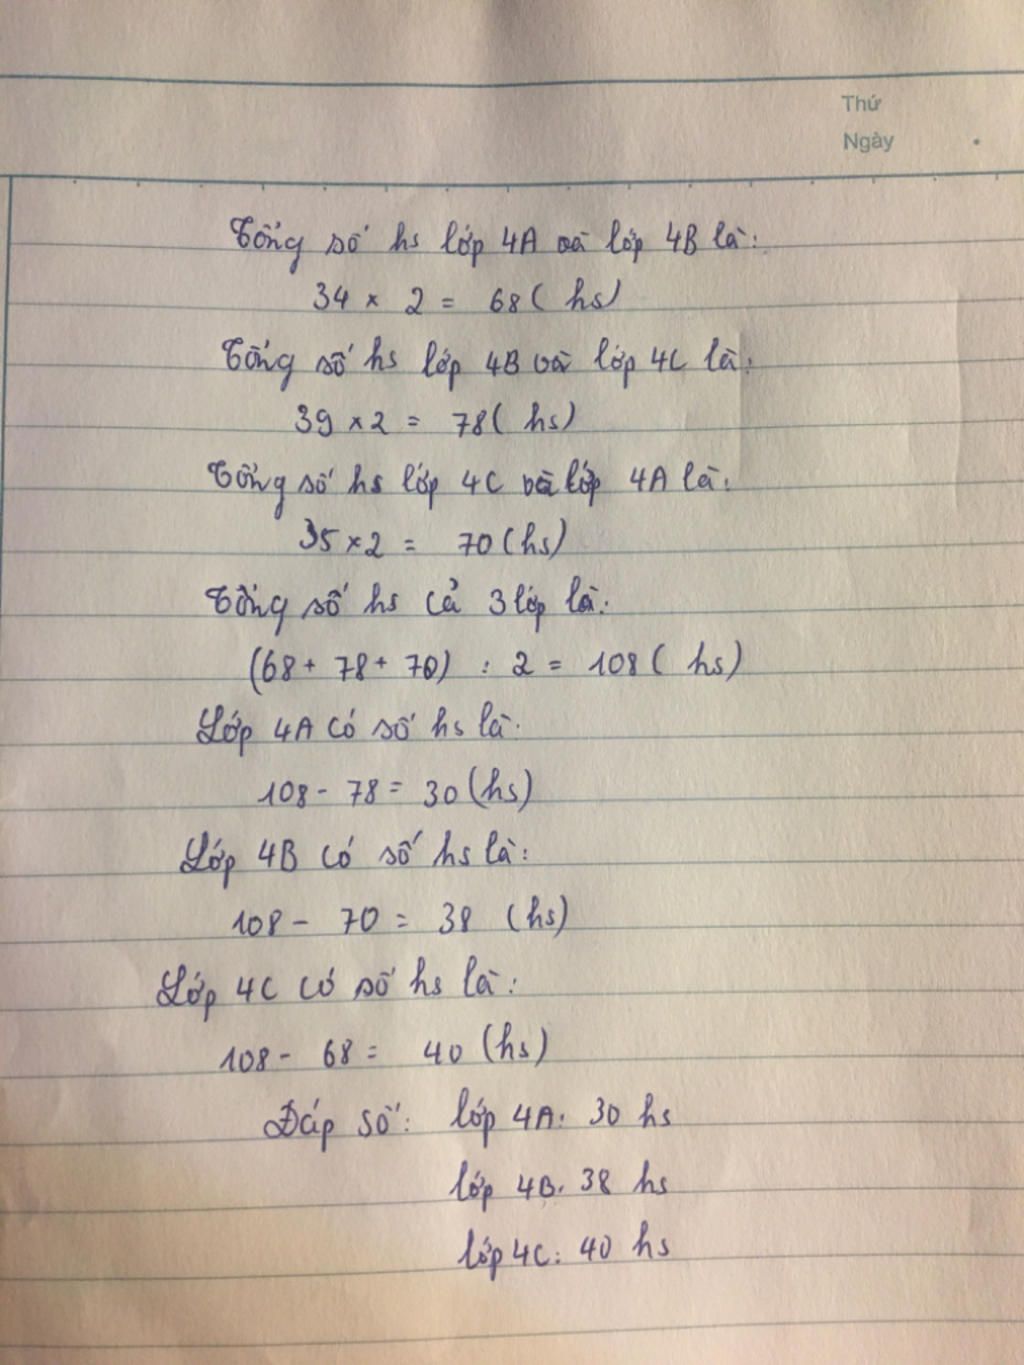 Thứ
Ngày
Tổng số hs lớp 4A và lớp 4B là:
34 x 2 = 68 ( hs)
Tổng số hs lớp 4B và lớp 4C là:
39 x 2 = 78 ( hs)
Tổng số hs lớp 4C và lớp 4A là:
35 x 2 = 70 (hs)
Tổng số hs cả 3 lớp là:
(68 + 78 + 70) : 2 = 108 ( hs)
Lớp 4A có số hs là:
108 - 78 = 30 (hs)
Lớp 4B có số hs là:
108 - 70 = 38 (hs)
Lớp 4C có số hs là:
108 - 68 = 40 (hs)
Đáp số: lớp 4A: 30 hs
lớp 4B: 38 hs
lớp 4C: 40 hs